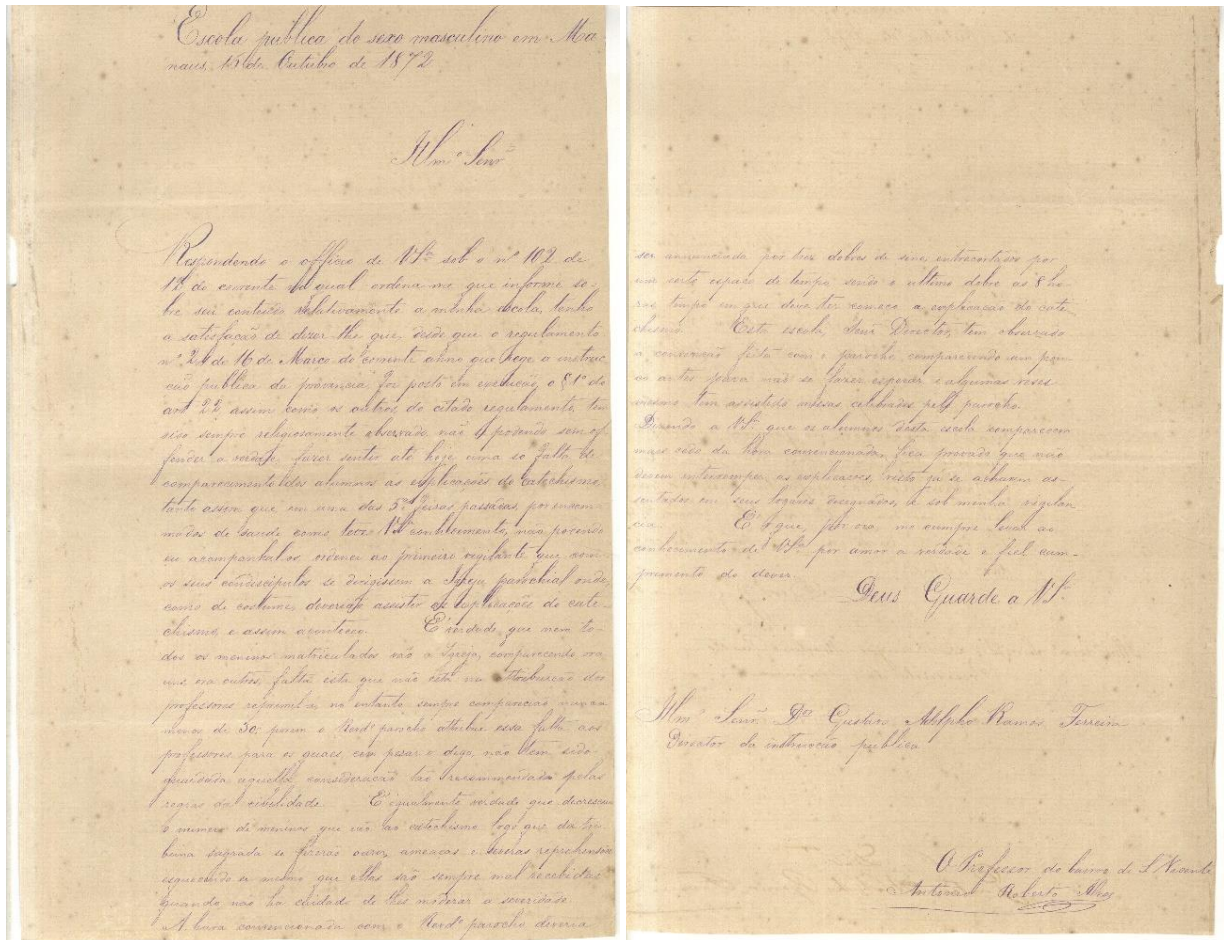 Escola publica do sexo masculino em Ma-
naus, 15 de Outubro de 1872
Illmº Senr
Respondendo o officio de V.Sª sob o nº 102 de
12 do corrente no qual ordena-me que informe so-
bre seu conteúdo relativamente a minha escola, tenho
a satisfação de dizer-lhe que, desde que o regulamento
nº 24 de 16 de Março do corrente anno que rege a instruc-
ção publica da provincia foi posto em execução, o § 1º do
art 22, assim como os outros do citado regulamento, tem
sido sempre religiosamente observado, não podendo sem of-
fender a verdade, fazer sentir até hoje uma só falta de
comparecimento dos alumnos as explicações do catechismo
tanto assim que em uma das 5as feiras passadas, por incom-
modos de saude como teve V.Sª conhecimento, não podendo
eu acompanhal-os ordenei ao primeiro vigilante que com
os seus condiscipulos se dirigissem a Igreja parochial onde,
como de costume, deverião assistir as explicações do cate-
chismo, e assim aconteceo. É verdade, que nem to-
dos os meninos matriculados vão a Igreja, comparecendo ora
uns ora outros, falta esta que não está na attribuição dos
professores reprimil-a no entanto sempre comparecião nunca
menos de 30; porem o Revdº parocho attribue essa falta aos
professores para os quaes, com pesar o digo, não tem sido
guardada aquella consideração tão recommendada pelas
regras da civilidade. É igualmente verdade que decresceu
o numero de meninos que vão ao catechismo logo que da tri-
buna sagrada se fizerão ouvir ameaças e severas reprehensões
esquecendo-se mesmo que ellas são sempre mal recebidas
quando não ha cuidado de lhes moderar a severidade.
A hora convencionada com o Revdº parocho deveria
ser annunciada por tres dobres de sino entrecortados por
um certo espaço de tempo sendo o ultimo dobre as 8 ho-
ras, tempo em que deve ter começo a explicação do cate-
chismo. Esta escola, Senr Director, tem observado
a convenção feita com o parocho comparecendo um pou-
co antes para não se fazer esperar e algumas veses
mesmo tem assistido missas celebradas pelo parocho.
Dizendo a V.Sª que os alumnos desta escola comparecem
mais cedo da hora convencionada, fica provado que não
devem interromper as explicações, visto já se acharem as-
sentados em seus logares designados, e sob minha vigilan-
cia. É o que, por ora, me cumpre levar ao
conhecimento de V.Sª por amor a verdade e fiel cum-
primento do dever.
Deus Guarde a V.Sª
Illmº Senr. Dor Gustavo Adolpho Ramos Ferreira
Director da instrucção publica
O Professor do bairro de S. Vicente
Antonio Roberto Alves